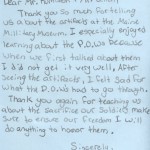 Dear Mr.
Thank you so much for telling
us about the artifacts at the Maine
Military Museum. I especially enjoyed
learning about the P.O.Ws because
when we first talked about them
I did not get it very well. After
seeing the artifacts, I felt sad for
what the P.O.Ws had to go through.
Thank you again for teaching us
about the sacrifice our Soldiers make
sure to ensure our freedom I will
do anything to honor them.
Sincerely,